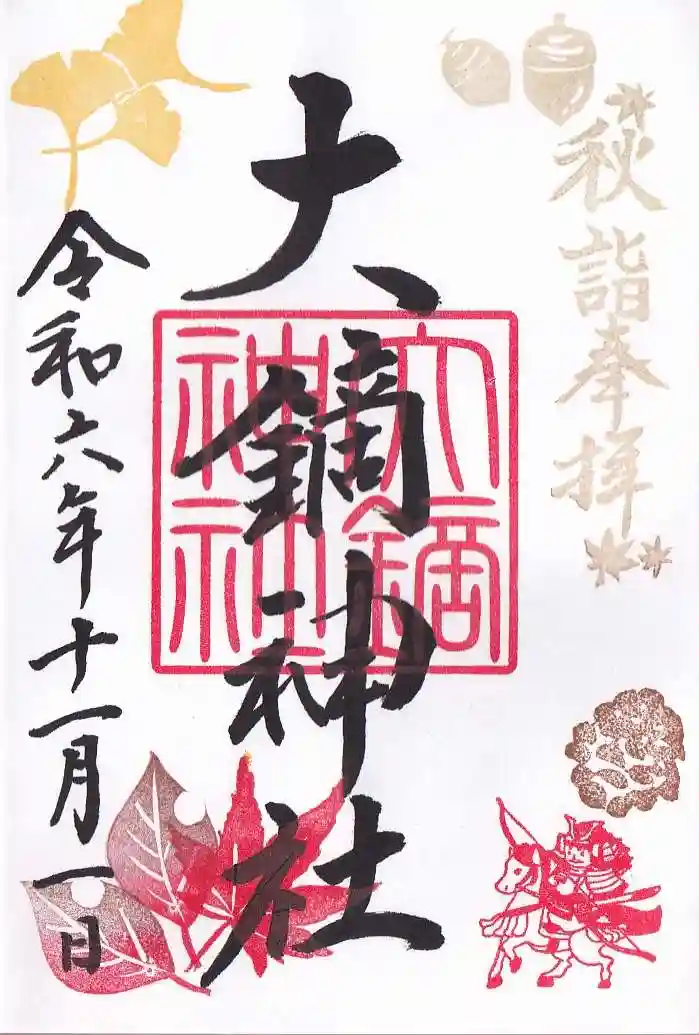 秋詣奉拝
大鏑神社
大鏑
神社
令和六年十一月一日